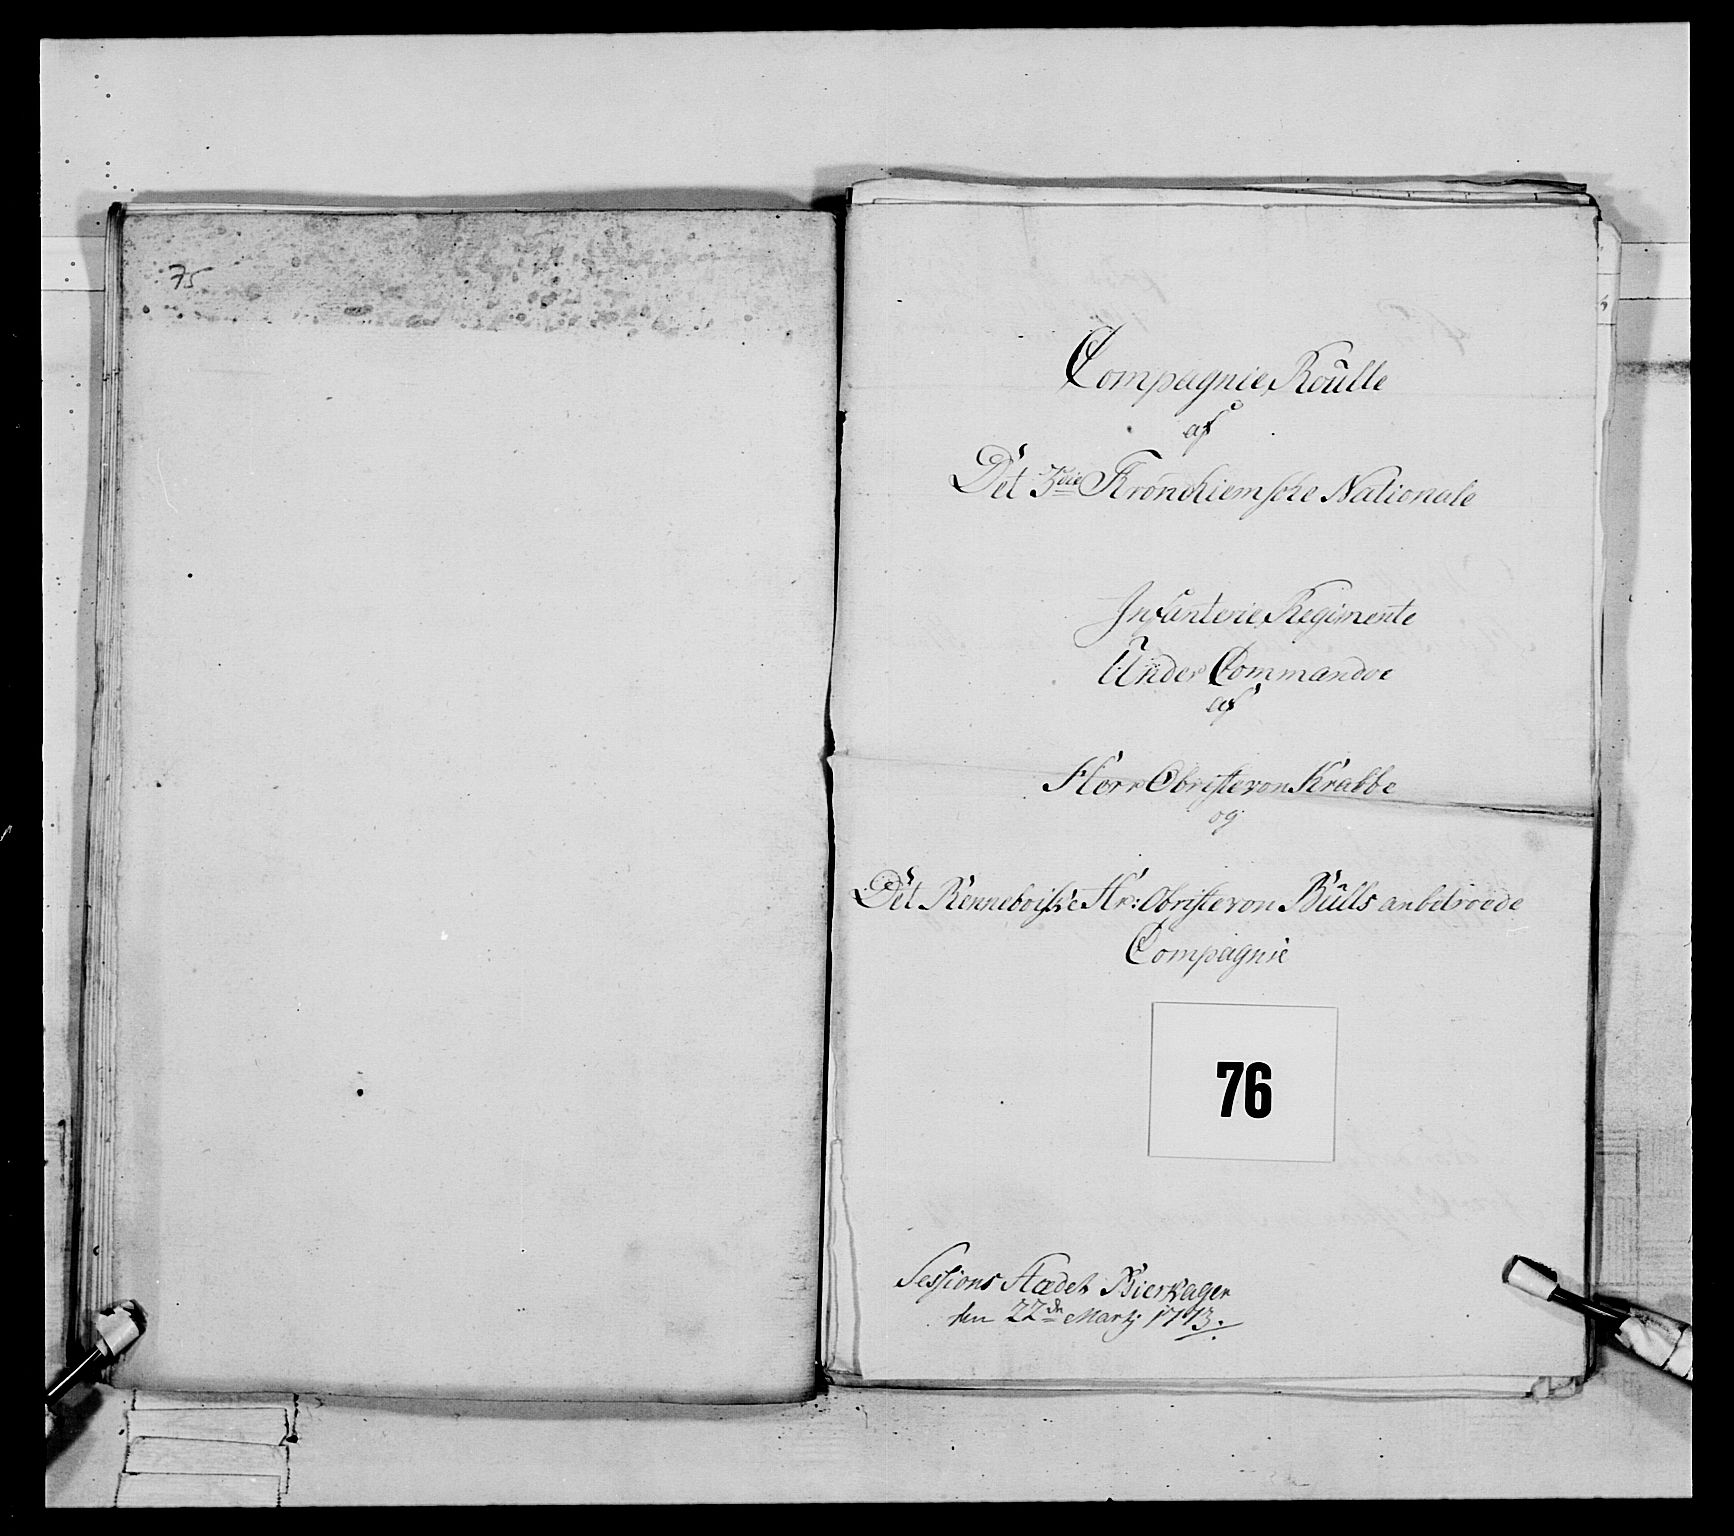 75
Compagnie Roulle
af
Det 3die Tronhiemske Nationale
Infanterie Regimente
Under Commandoe
af
Herr Obriste von Krabbe
og
Det Renneboiske Hr: Obriste von Bülls anbetroede
Compagnie
76
Sessions Stædet Bierkager
den 22de Martj 1773.